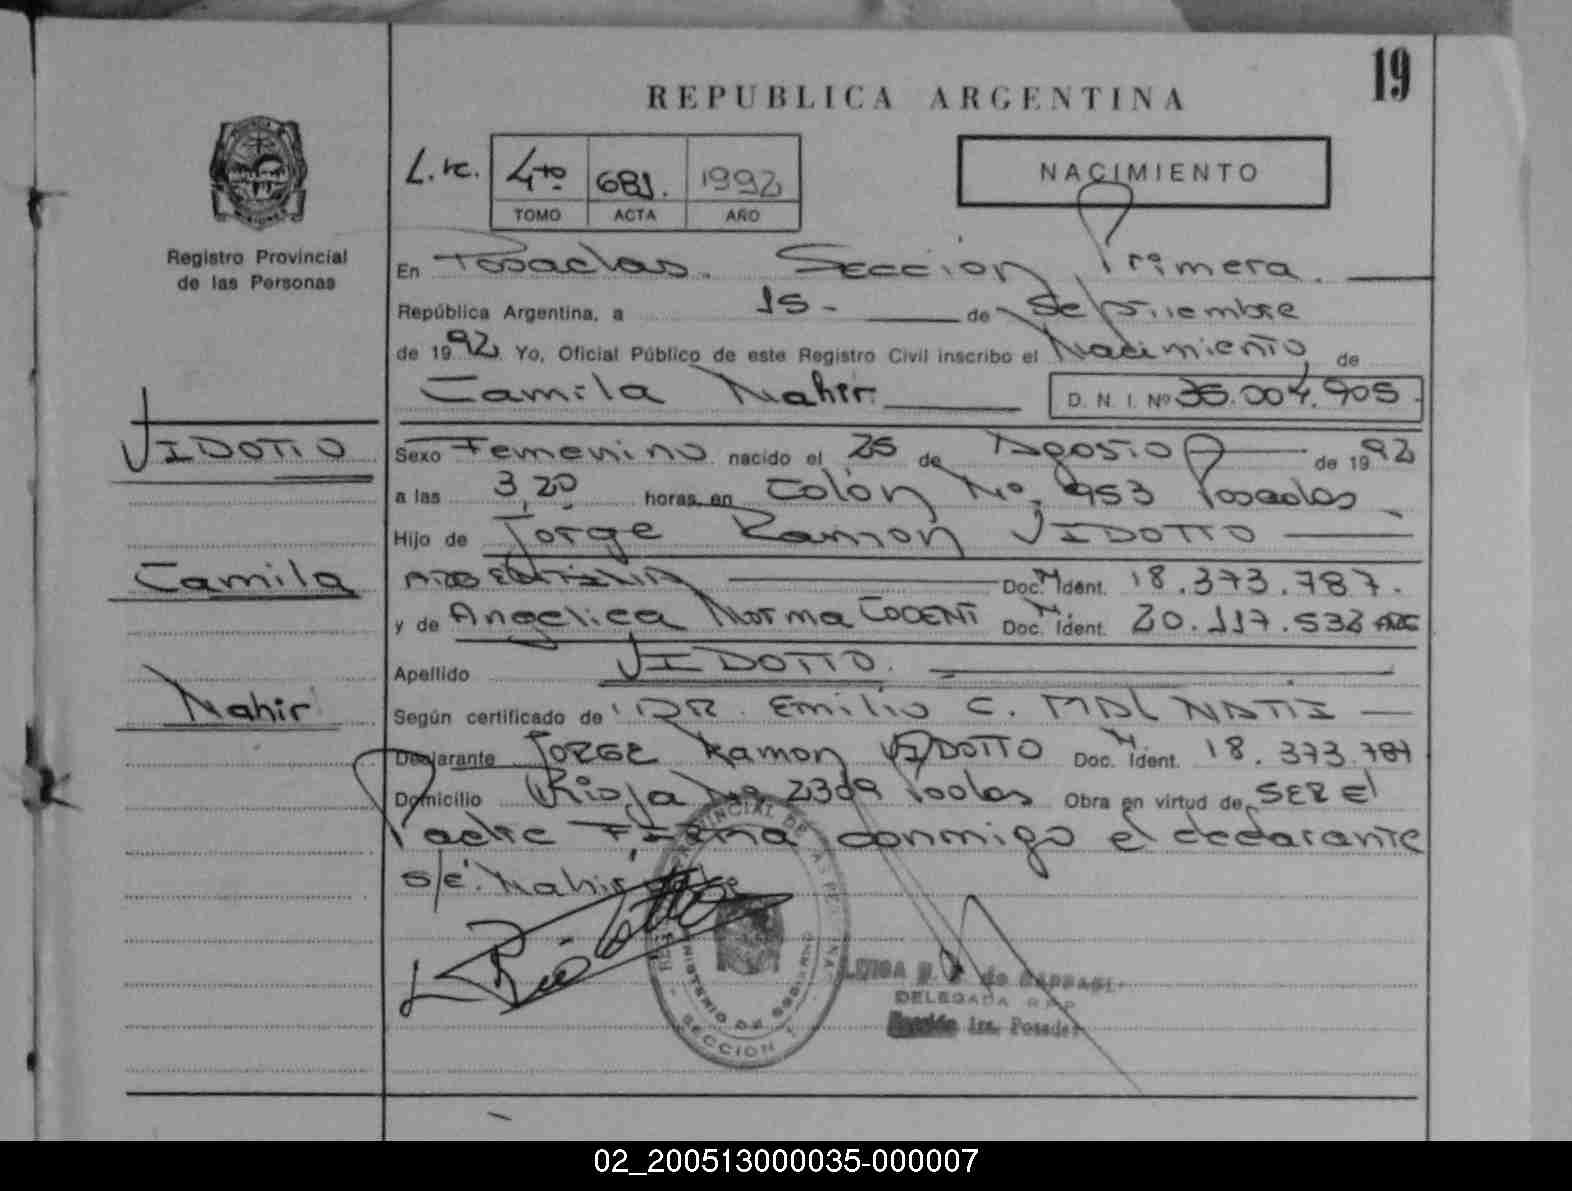 19
REPUBLICA ARGENTINA
4to 681. 1992
TOMO ACTA AÑO
NACIMIENTO
Registro Provincial
de las Personas
En Posadas. Sección Primera.
República Argentina, a 15 - de Septiembre
de 1992 Yo, Oficial Público de este Registro Civil inscribo el Nacimiento de
Camila Nahir D. N. I. Nº 36.004.905.
VIDOTTO
Sexo Femenino nacido el 25 de Agosto de 1992
a las 3,20 horas, en Colón No. 953 Posadas
Hijo de Jorge Ramon VIDOTTO
Camila
ARGENTINA Doc. M Ident. 18.373.787.
y de Angelica Norma CODENT Doc. M Ident. 20.117.532 ARG
Apellido VIDOTTO.
Nahir
Según certificado de DR. Emilio C. MALNATTI
Declarante JORGE Ramon VIDOTTO Doc. M Ident. 18.373.787
Domicilio Rioja No 2309 Posdas Obra en virtud de SER El
Padre Firma conmigo el declarante
s/e. Nahir
MINISTERIO DE GOBIERNO
SECCION 1
DELEGADA R.P.P
Sección 1ra. Posadas
02_200513000035-000007